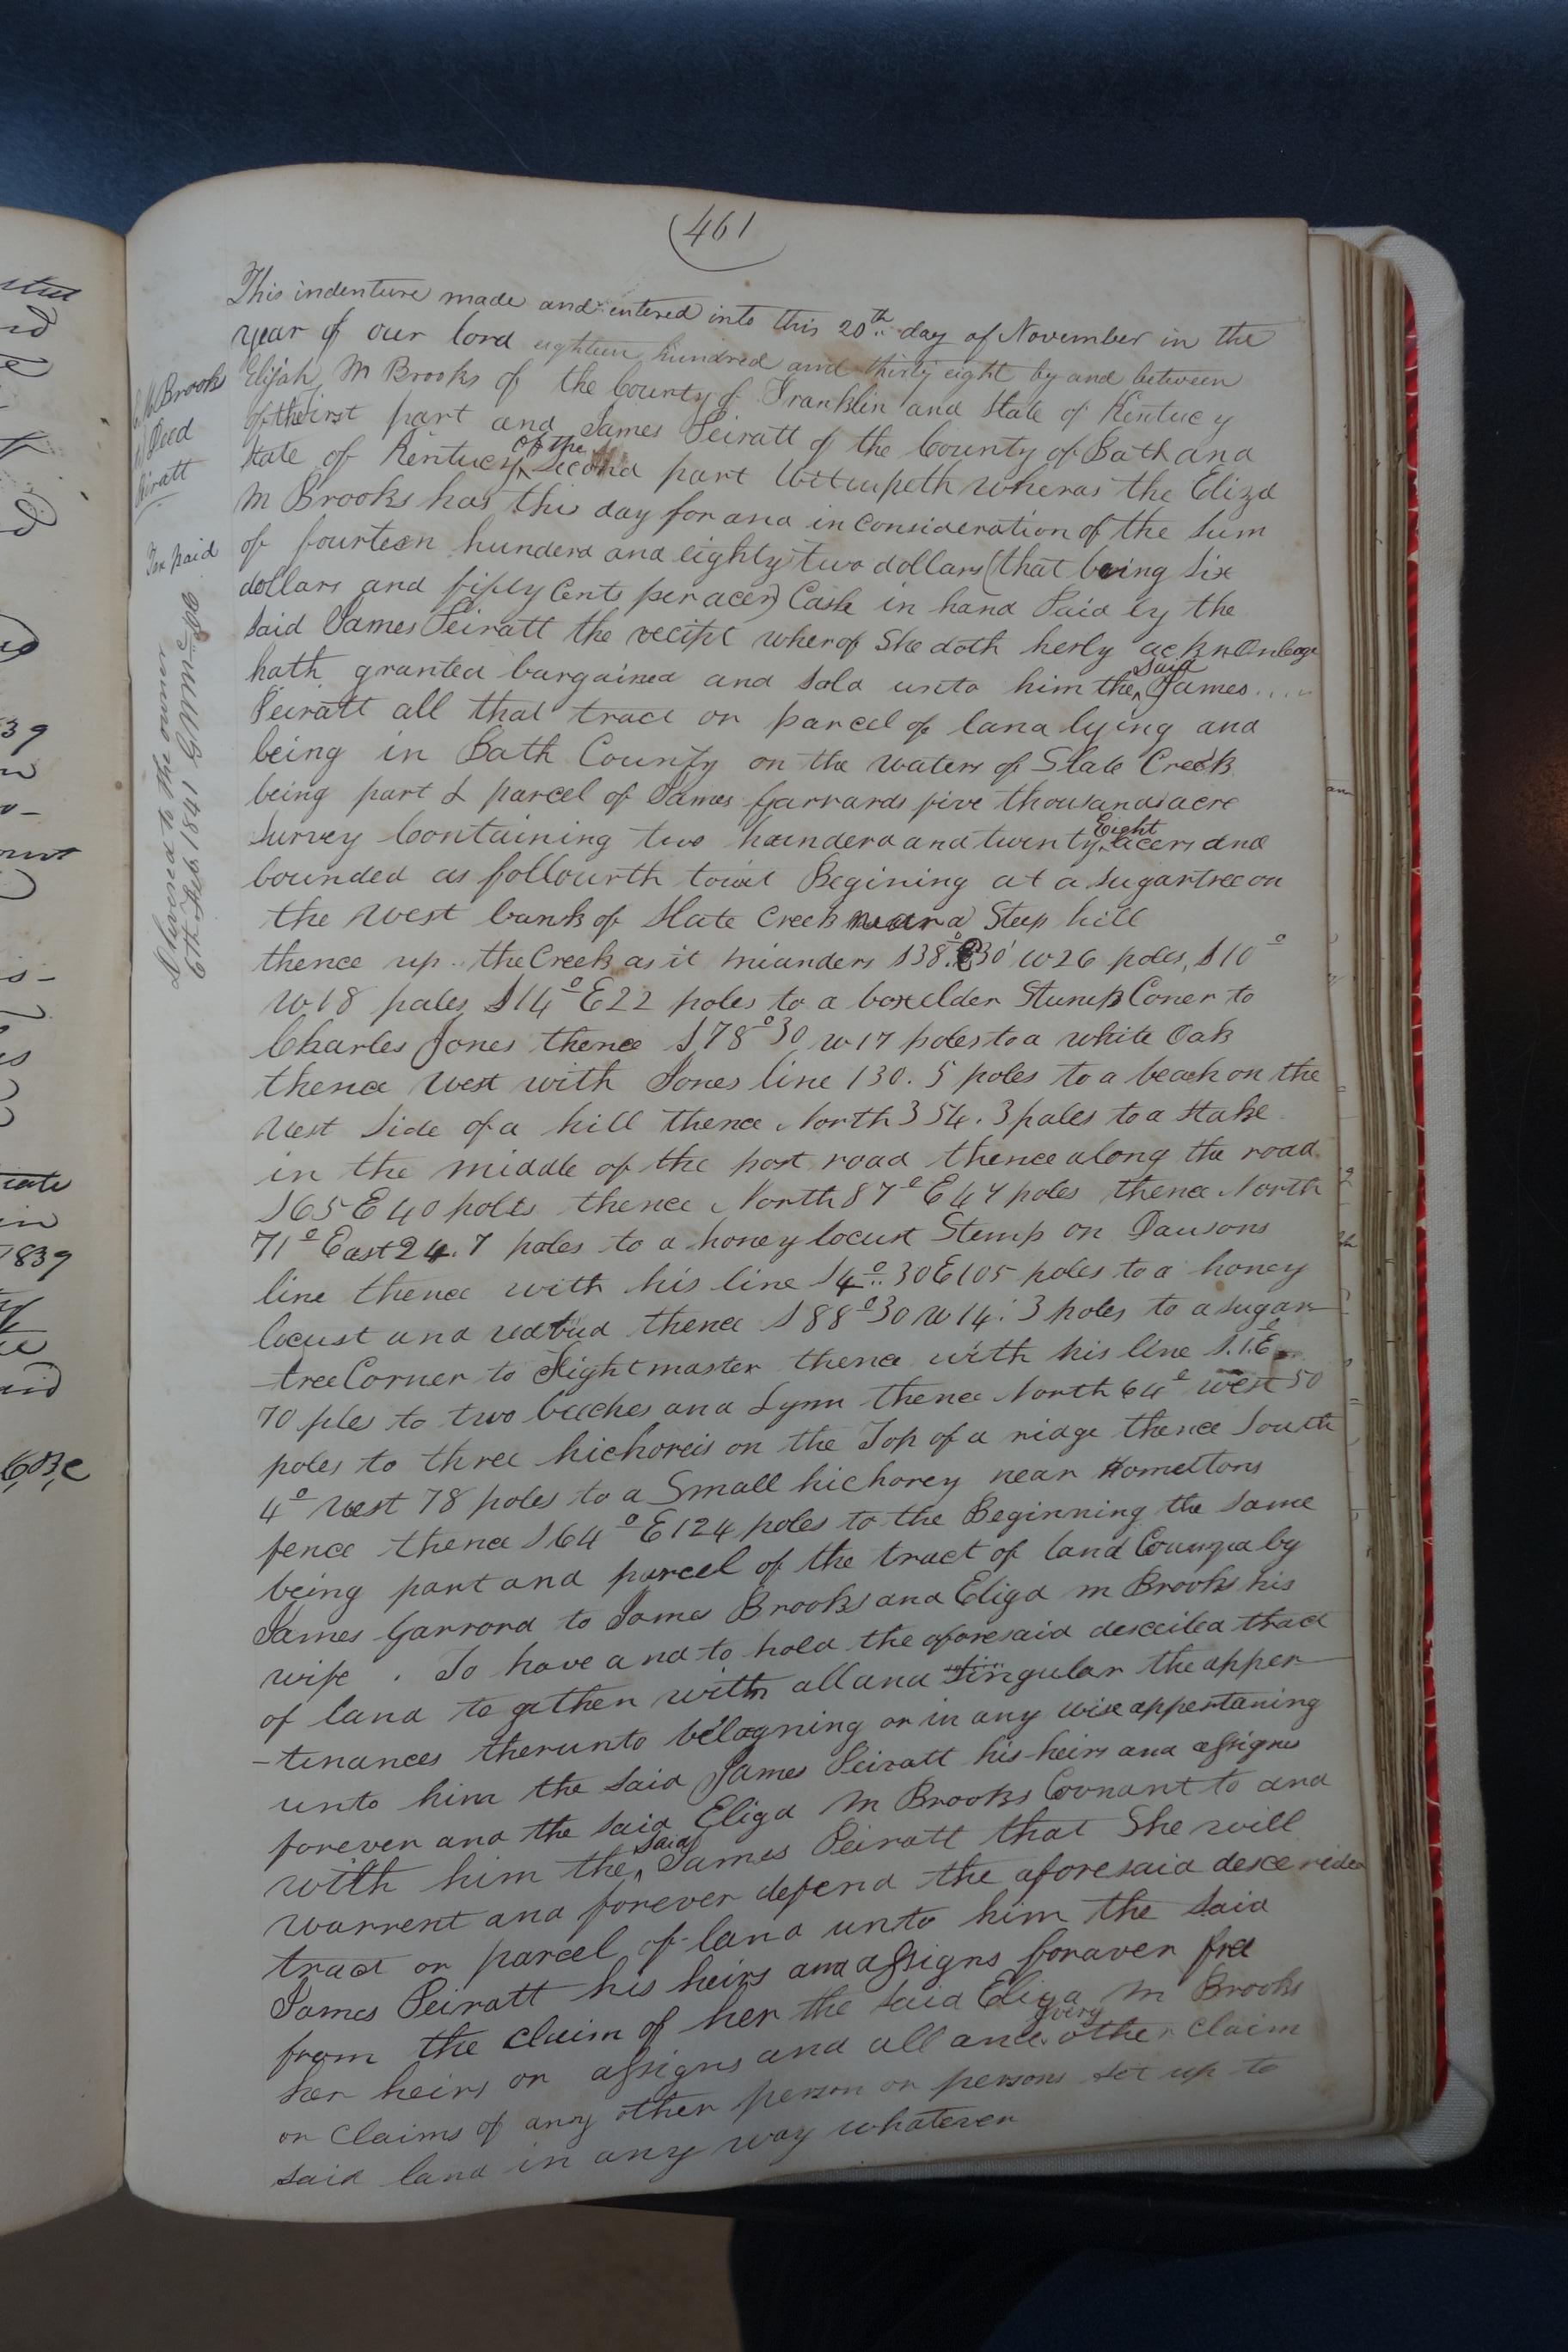 461
This indenture made and entered into this 20th day of November in the
year of our lord eighteen hundred and thirty eight by and between
Elijah M Brooks of the County of Franklin and State of Kentucy
of the first part and James Peiratt of the County of Bath and
State of Kentucy of the Second part Witnesseth wheras the Eliza
M Brooks has this day for and in Consideration of the Sum
of fourteen hunderd and eighty two dollars (that being Six
dollars and fifty Cents per acer) Cash in hand Paid by the
Said James Peiratt the recipt wherof She doth herby acknowlege
hath granted bargained and Sold unto him the Said James ....
Peiratt all that tract or parcel of land lying and
being in Bath County on the waters of Slate Creek
being part & parcel of James Garrards five thousand acre
Survey Containing two hunderd and twenty Eight acers and
bounded as follourth towit Begining at a Sugartree on
the west bank of Slate Creek near a Steep hill
thence up the Creek as it mianders S38.°30' W26 poles, S10°
W18 poles S14°E22 poles to a boxelder Stump Coner to
Charles Jones thence S78°30 W17 poles to a white Oak
thence west with Jones line 130.5 poles to a beach on the
West Side of a hill thence North 354.3 poles to a Stake
in the middle of the post road thence along the road
S65E40 poles thence North 87°E47 poles thence North
71° East 24.7 poles to a honey locust Stemp on Dawsons
line thence with his line S4°..30E105 poles to a honey
locust and redbud thence S88°30 W14.3 poles to a sugar
-tree Corner to Hightmaster thence with his line S.1.E
70 ples to two beeches and Lynn thence North 64° west 50
poles to three hichoreis on the Top of a ridge thence South
4° West 78 poles to a Small hichorey near Homeltons
fence thence S64°E124 poles to the Beginning the Same
being part and parcel of the tract of land by
James Garrord to James Brooks and Eliga M Brooks his
wife . To have and to hold the aforesaid tract
of land to gither with all and Singular the apper
-tinances therunto belogning or in any wise appertaning
unto him the Said James Peiratt his heirs and assigns
forever and the Said Eliga M Brooks Covnant to and
with him the Said James Peiratt that She will
warrent and forever defend the aforesaid
tract or parcel of land unto him the Said
James Peiratt his heirs and assigns foraver free
from the Claim of her the Said Eliga M Brooks
her heirs or assigns and all and every other Claim
or Claims of any other person or persons Set up to
Said land in any way whatever
Brooks
Deed
Peiratt
Tax paid
Dlivered to the owner
6th Feb 1841